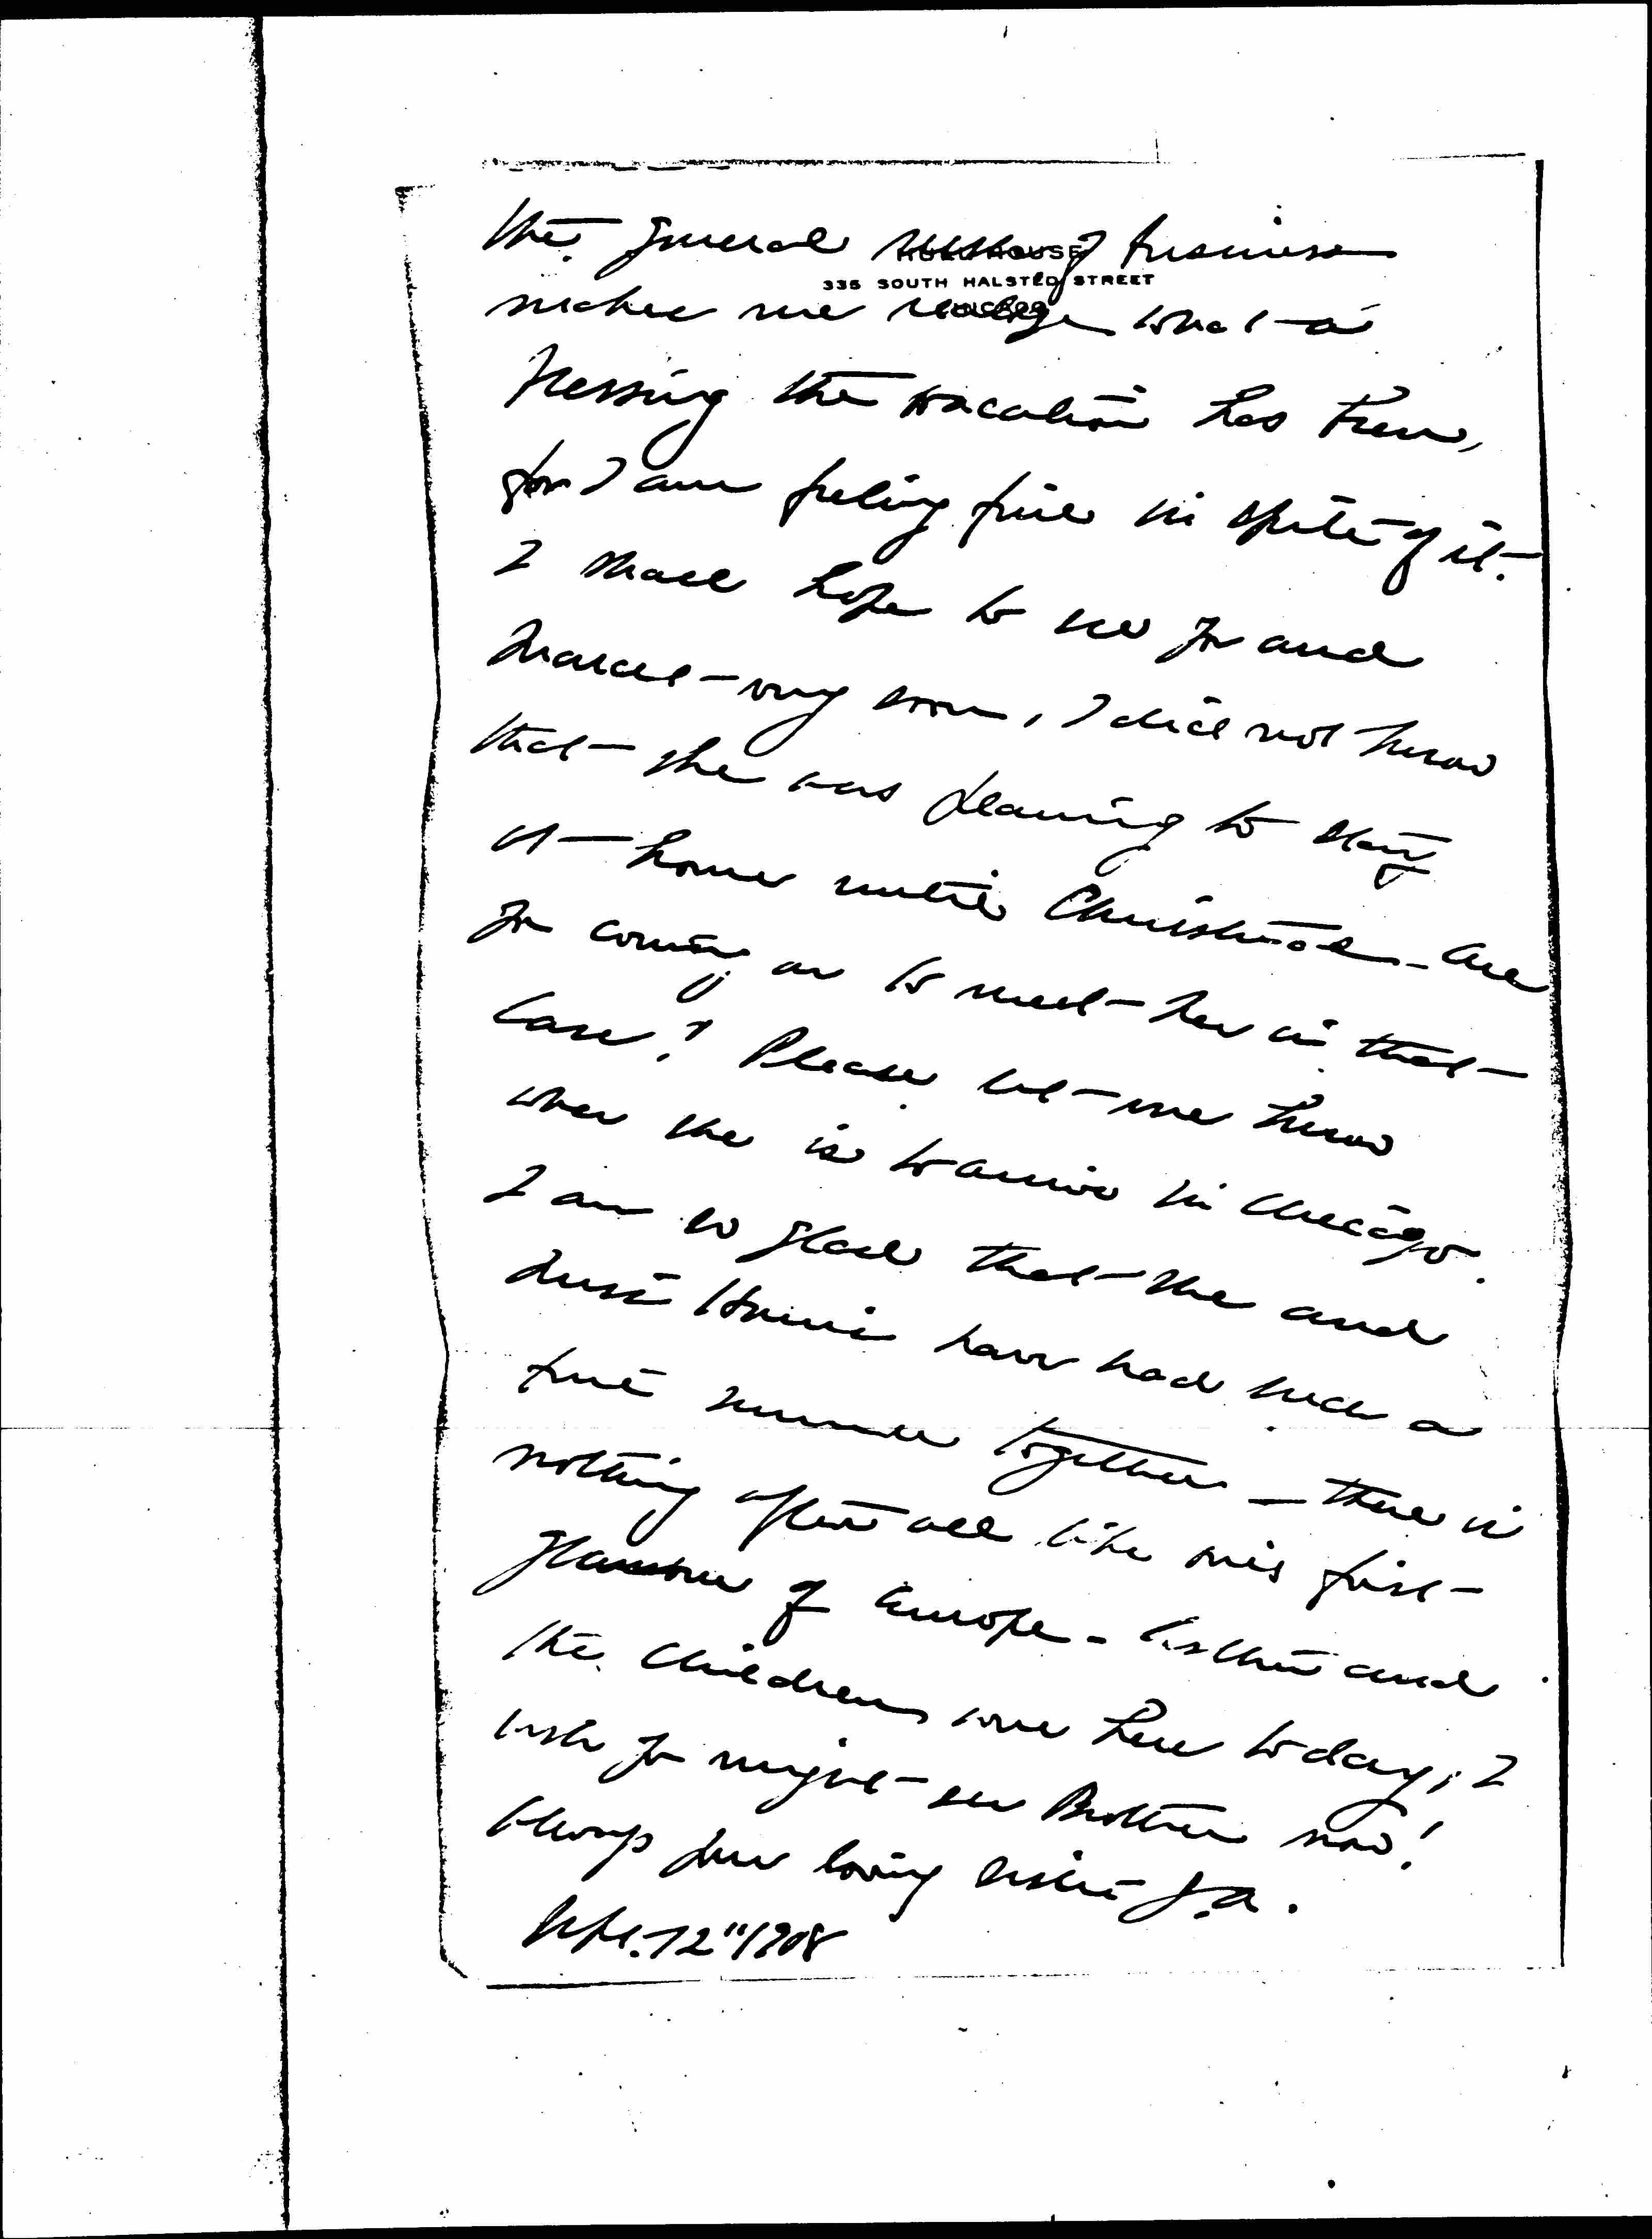 HULL HOUSE
335 SOUTH HALSTED STREET
CHICAGO
the general rush of business
makes me realize what a
blessing the vacation has been,
for I am feeling fine in spite of it.
I shall hope to see you and
Marcet very soon, I did not know
that she was planning to stay
at home until Christmas. Are
you coming on to meet her in that
case? Please let me know
when she is to arrive in Chicago.
I am so glad that she and
have had such a
fine summer together — there is
nothing after all like one's first
glamour of Europe. Esther and
the children were here today, I
wish you might see Brother now!
Always your loving sister J.A.
Sept. 12" 1908